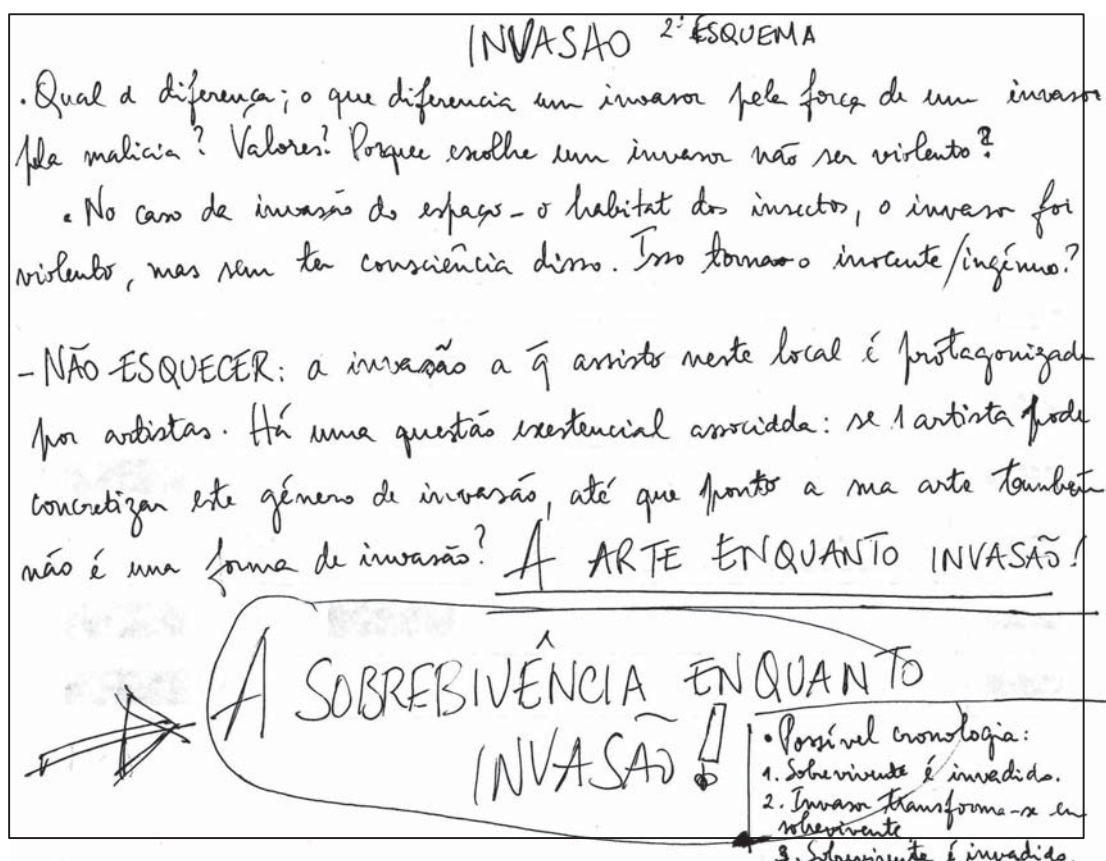 INVASÃO 2º ESQUEMA
. Qual a diferença; o que diferencia um invasor pela força de um invasor
pela malícia? Valores? Porque escolhe um invasor não ser violento?
. No caso da invasão do espaço - o habitat dos insectos, o invasor foi
violento, mas sem ter consciência disso. Isso torna-o inocente/ingénuo?
- NÃO ESQUECER: a invasão a q̃ assisto neste local é protagonizada
por artistas. Há uma questão existencial associdda: se 1 artista pode
concretizar este género de invasão, até que ponto a sua arte também
não é uma forma de invasão? A ARTE ENQUANTO INVASÃO!
A SOBREBIVÊNCIA ENQUANTO
INVASÃO!
• Possível cronologia:
1. Sobrevivente é invadido.
2. Invasor transforma-se em
sobrevivente
3. Sobrevivente é invadido.